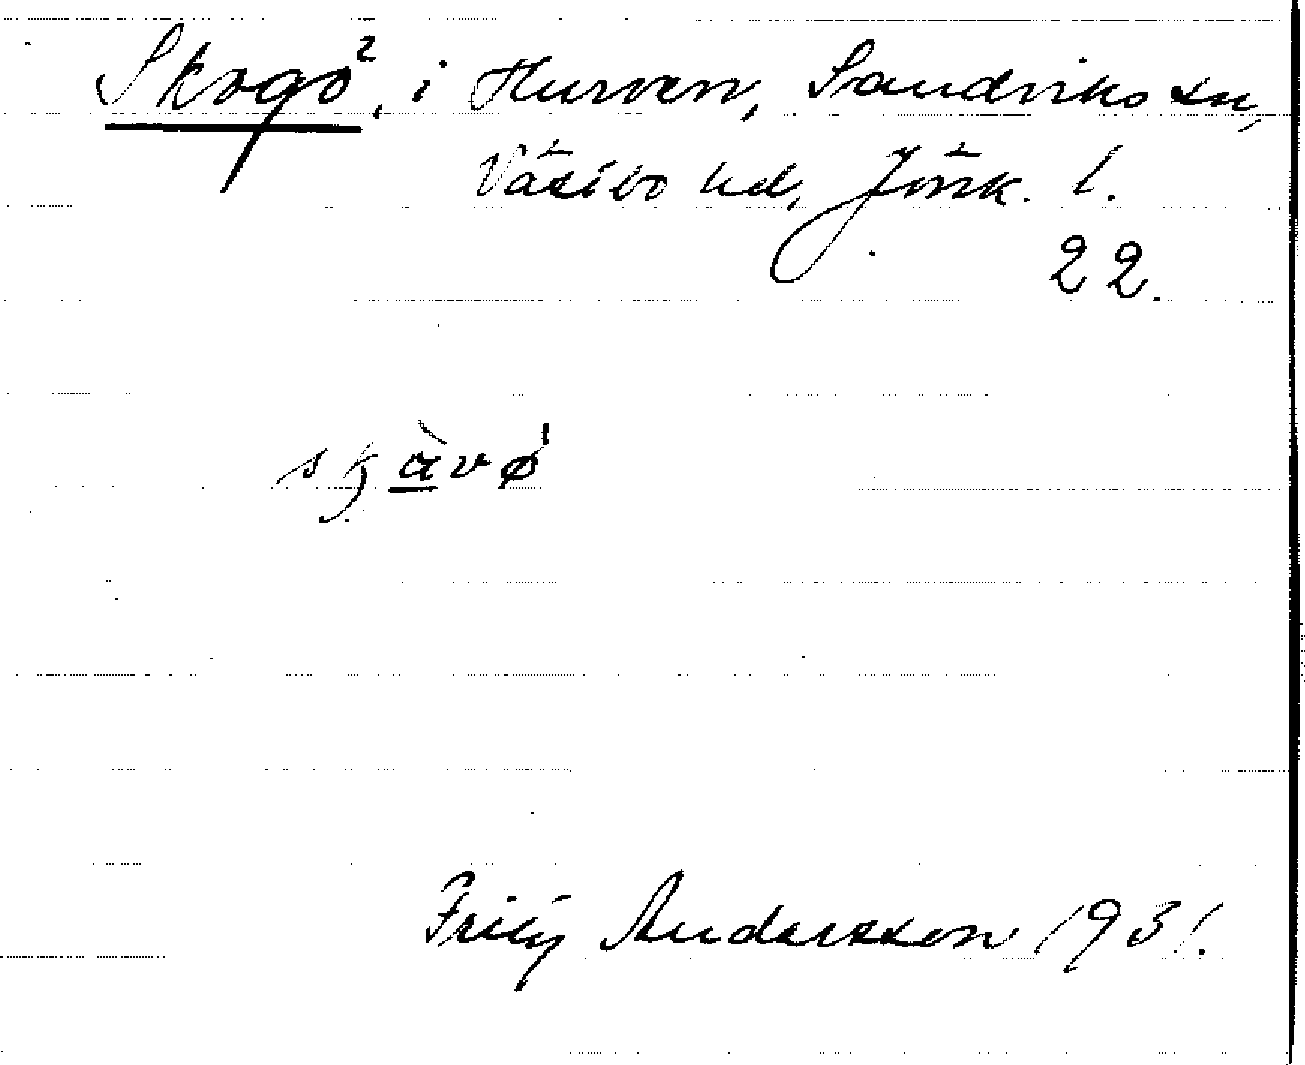 Skogö², i Hurven, Sandviks sn,
Västbo hd, Jönk. l.
22.
skàvø
Fritz Andersson 1931.